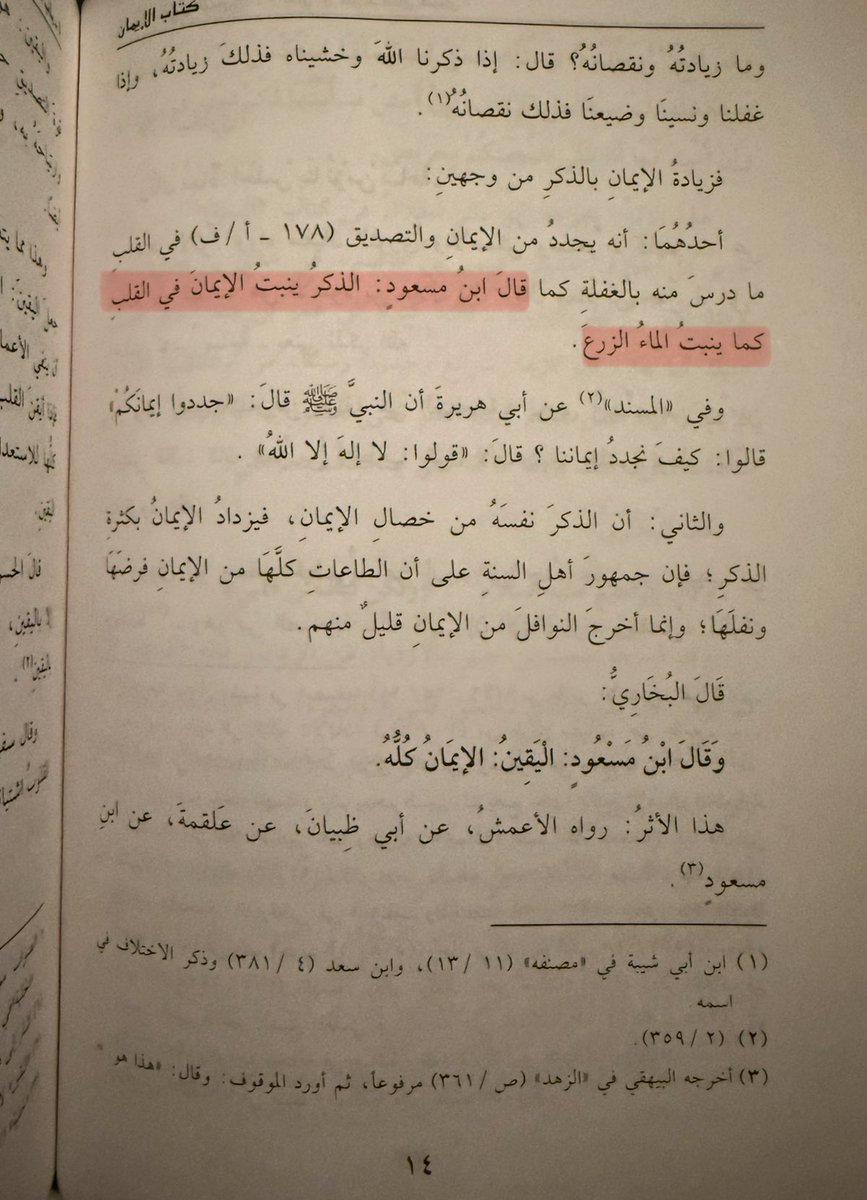 كتاب الإيمان
وما زيادتُهُ ونقصانُهُ؟ قال: إذا ذكرنا اللهَ وخشيناه فذلكَ زيادتُهُ، وإذا
غفلنا ونسينَا وضيعنَا فذلك نقصانُهُ(١).
فزيادةُ الإيمانِ بالذكرِ من وجهينِ:
أحدُهُمَا: أنه يجددُ من الإيمانِ والتصديق (١٧٨ - أ / ف) في القلبِ
ما درسَ منه بالغفلةِ كما قالَ ابنُ مسعودٍ: الذكرُ ينبتُ الإيمانَ في القلبِ
كما ينبتُ الماءُ الزرعَ.
وفي «المسند»(٢) عن أبي هريرةَ أن النبيَّ ﷺ قالَ: «جددوا إيمانَكُمْ»
قالوا: كيفَ نجددُ إيماننا ؟ قالَ: «قولوا: لا إلهَ إلا اللهُ» .
والثاني: أن الذكرَ نفسَهُ من خصالِ الإيمانِ، فيزدادُ الإيمانُ بكثرةِ
الذكرِ؛ فإن جمهورَ أهلِ السنةِ على أن الطاعاتِ كلَّهَا من الإيمانِ فرضَهَا
ونفلَهَا؛ وإنما أخرجَ النوافلَ من الإيمانِ قليلٌ منهم.
قَالَ البُخَارِيُّ:
وَقَالَ ابْنُ مَسْعُودٍ: الْيَقِينُ: الإيمَانُ كُلُّهُ.
هذا الأثرُ: رواه الأعمشُ، عن أبي ظِبيانَ، عن عَلقمةَ، عن ابنِ
مسعودٍ(٣).
(١) ابن أبي شيبة في «مصنفه» (١١ /١٣)، وابن سعد (٤ /٣٨١) وذكر الاختلاف في
اسمه
(٢) (٢ /٣٥٩).
(٣) أخرجه البيهقي في «الزهد» (ص /٣٦١) مرفوعاً، ثم أورد الموقوف: وقال: «هذا هو
١٤